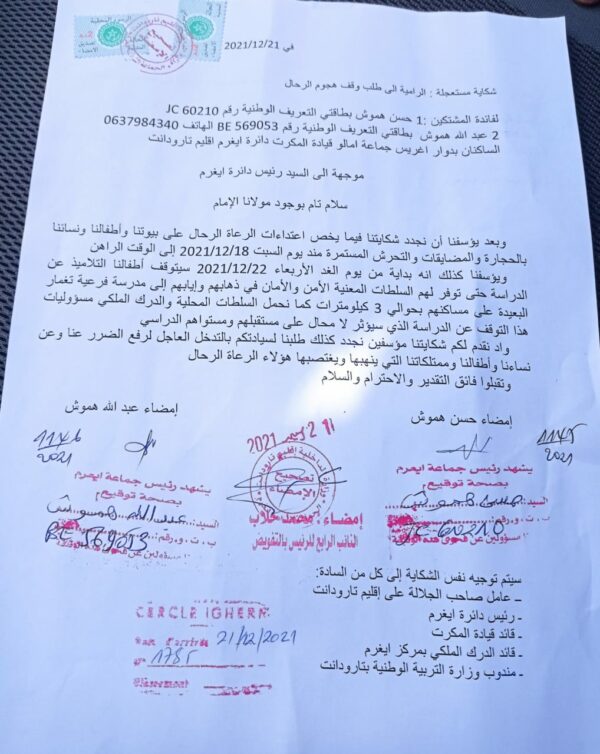 في 2021/12/21
شكاية مستعجلة : الرامية الى طلب وقف هجوم الرحال
لفائدة المشتكين :1 حسن هموش بطاقتي التعريف الوطنية رقم JC 60210
2 عبد الله هموش بطاقتي التعريف الوطنية رقم BE 569053 الهاتف 0637984340
الساكنان بدوار اغريس جماعة امالو قيادة المكرت دائرة ايغرم اقليم تارودانت
موجهة الى السيد رئيس دائرة ايغرم
سلام تام بوجود مولانا الإمام
وبعد يؤسفنا أن نجدد شكايتنا فيما يخص اعتداءات الرعاة الرحال على بيوتنا وأطفالنا ونسائنا
بالحجارة والمضايقات والتحرش المستمرة مند يوم السبت 2021/12/18 إلى الوقت الراهن
ويؤسفنا كذلك انه بداية من يوم الغد الأربعاء 2021/12/22 سيتوقف أطفالنا التلاميذ عن
الدراسة حتى توفر لهم السلطات المعنية الأمن والأمان في ذهابهم وإيابهم إلى مدرسة فرعية تغمار
البعيدة على مساكنهم بحوالي 3 كيلومترات كما نحمل السلطات المحلية والدرك الملكي مسؤوليات
هذا التوقف عن الدراسة الذي سيؤثر لا محال على مستقبلهم ومستواهم الدراسي
واد نقدم لكم شكايتنا مؤسفين نجدد كذلك طلبنا لسيادتكم بالتدخل العاجل لرفع الضرر عنا وعن
نساءنا وأطفالنا وممتلكاتنا التي ينهبها ويغتصبها هؤلاء الرعاة الرحال
وتقبلوا فائق التقدير والاحترام والسلام
إمضاء حسن هموش
إمضاء عبد الله هموش
1145
2021
1146
2021
21 دجمبر 2021
يشهد رئيس جماعة ايغرم
بصحة توقيع
السيد: حسن هموش
ب.ت.و.رقم: JC 60210
يشهد رئيس جماعة ايغرم
بصحة توقيع
السيد: عبد الله هموش
ب.ت.و.رقم: BE 569053
تصحيح
الإمضاء
إمضاء : محمد خلاب
النائب الرابع للرئيس بالتفويض
سيتم توجيه نفس الشكاية إلى كل من السادة:
ـ عامل صاحب الجلالة على إقليم تارودانت
ـ رئيس دائرة ايغرم
ـ قائد قيادة المكرت
ـ قائد الدرك الملكي بمركز ايغرم
ـ مندوب وزارة التربية الوطنية بتارودانت
CERCLE IGHERM
21/12/2021
n° 1785
Classement